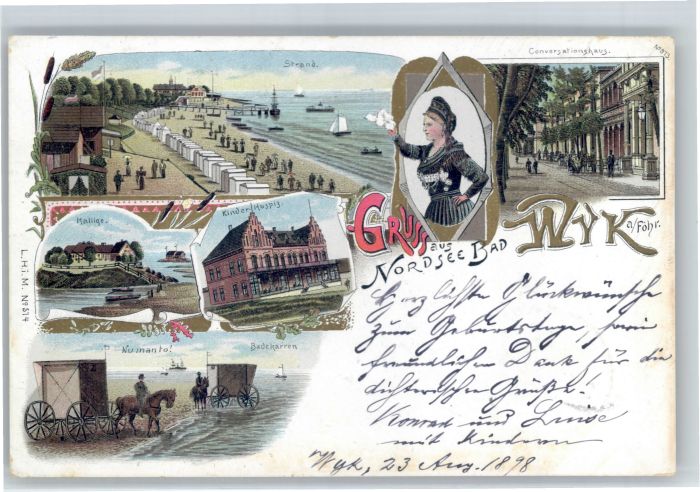 Strand.
Conversationshaus.
No 873
Hallige.
Kinder Hospiz.
Gruss aus
Nordsee Bad
Wyk a/Föhr.
L.Hi.M. No 514
Nu man to!
Badekarren
Herzlichste Glückwünsche
zum Geburtstage, sowie
freundlichen Dank für die
dichterischen Grüße!
Konrad und Luise
mit Kindern
Wyk, 23 Aug. 1898